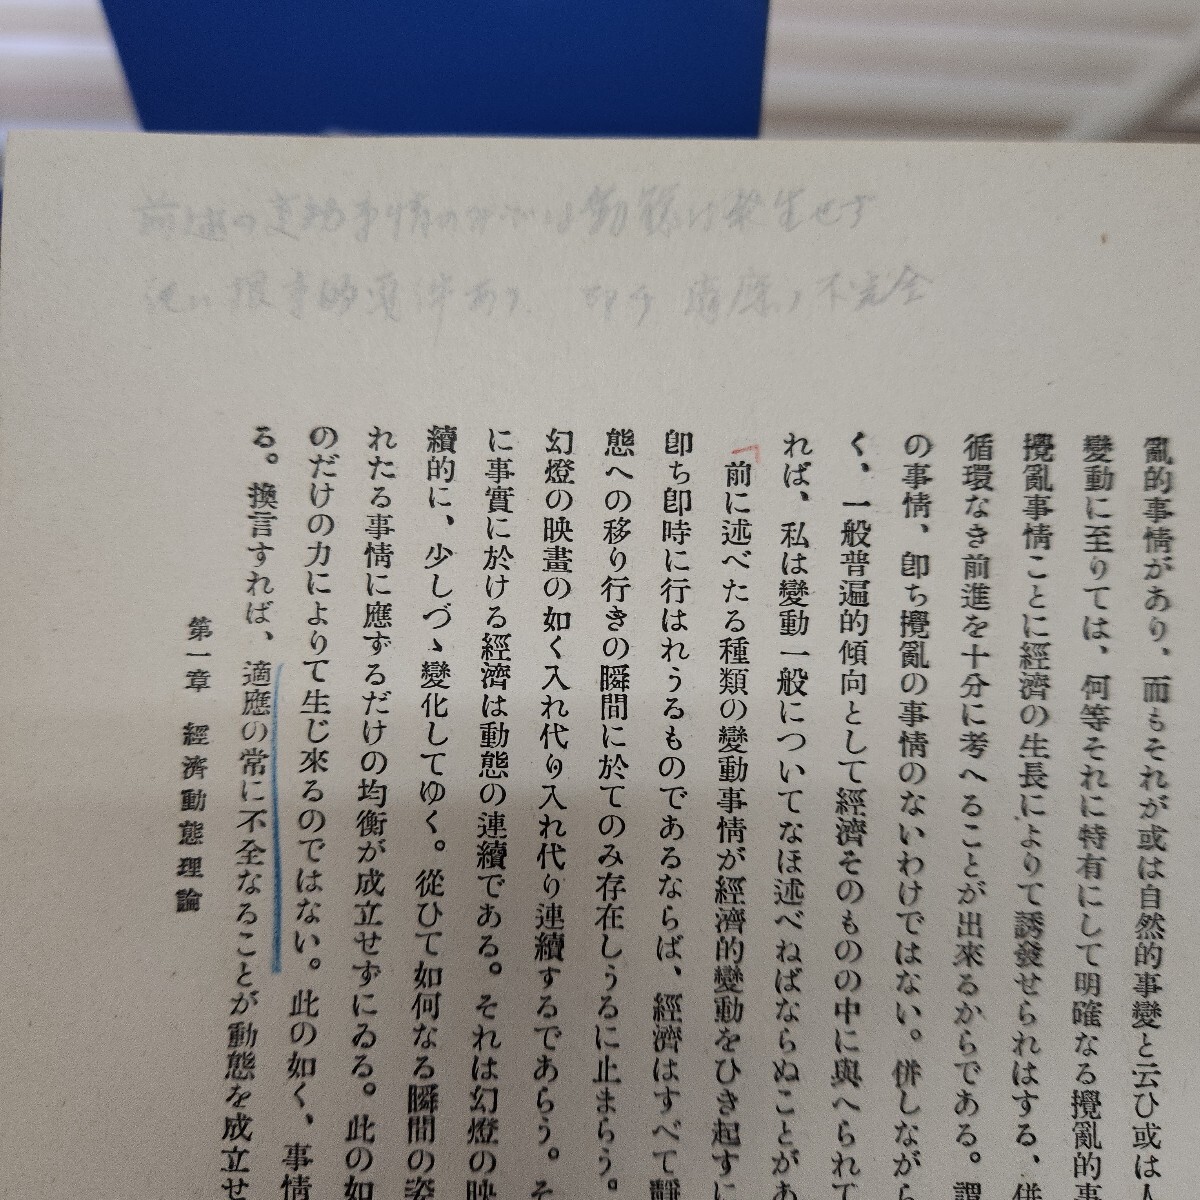 前述の変動事情のみでは動態は発生せず
不完全
亂的事情があり、而もそれが或は自然的事變と云ひ或は人
變動に至りては、何等それに特有にして明確なる攪亂的事
攪亂事情ことに經濟の生長によりて誘發せられはする、併
循環なき前進を十分に考へることが出來るからである。謂
の事情、卽ち攪亂の事情のないわけではない。併しながら
く、一般普遍的傾向として經濟そのものの中に與へられて
れば、私は變動一般についてなほ述べねばならぬことがあ
「前に述べたる種類の變動事情が經濟的變動をひき起すに
卽ち卽時に行はれうるものであるならば、經濟はすべて靜
態への移り行きの瞬間に於てのみ存在しうるに止まらう。
幻燈の映畫の如く入れ代り入れ代り連續するであらう。そ
に事實に於ける經濟は動態の連續である。それは幻燈の映
續的に、少しづゝ變化してゆく。從ひて如何なる瞬間の姿
れたる事情に應ずるだけの均衡が成立せずにゐる。此の如
のだけの力によりて生じ來るのではない。此の如く、事情
る。換言すれば、適應の常に不全なることが動態を成立せ
第一章 經濟動態理論